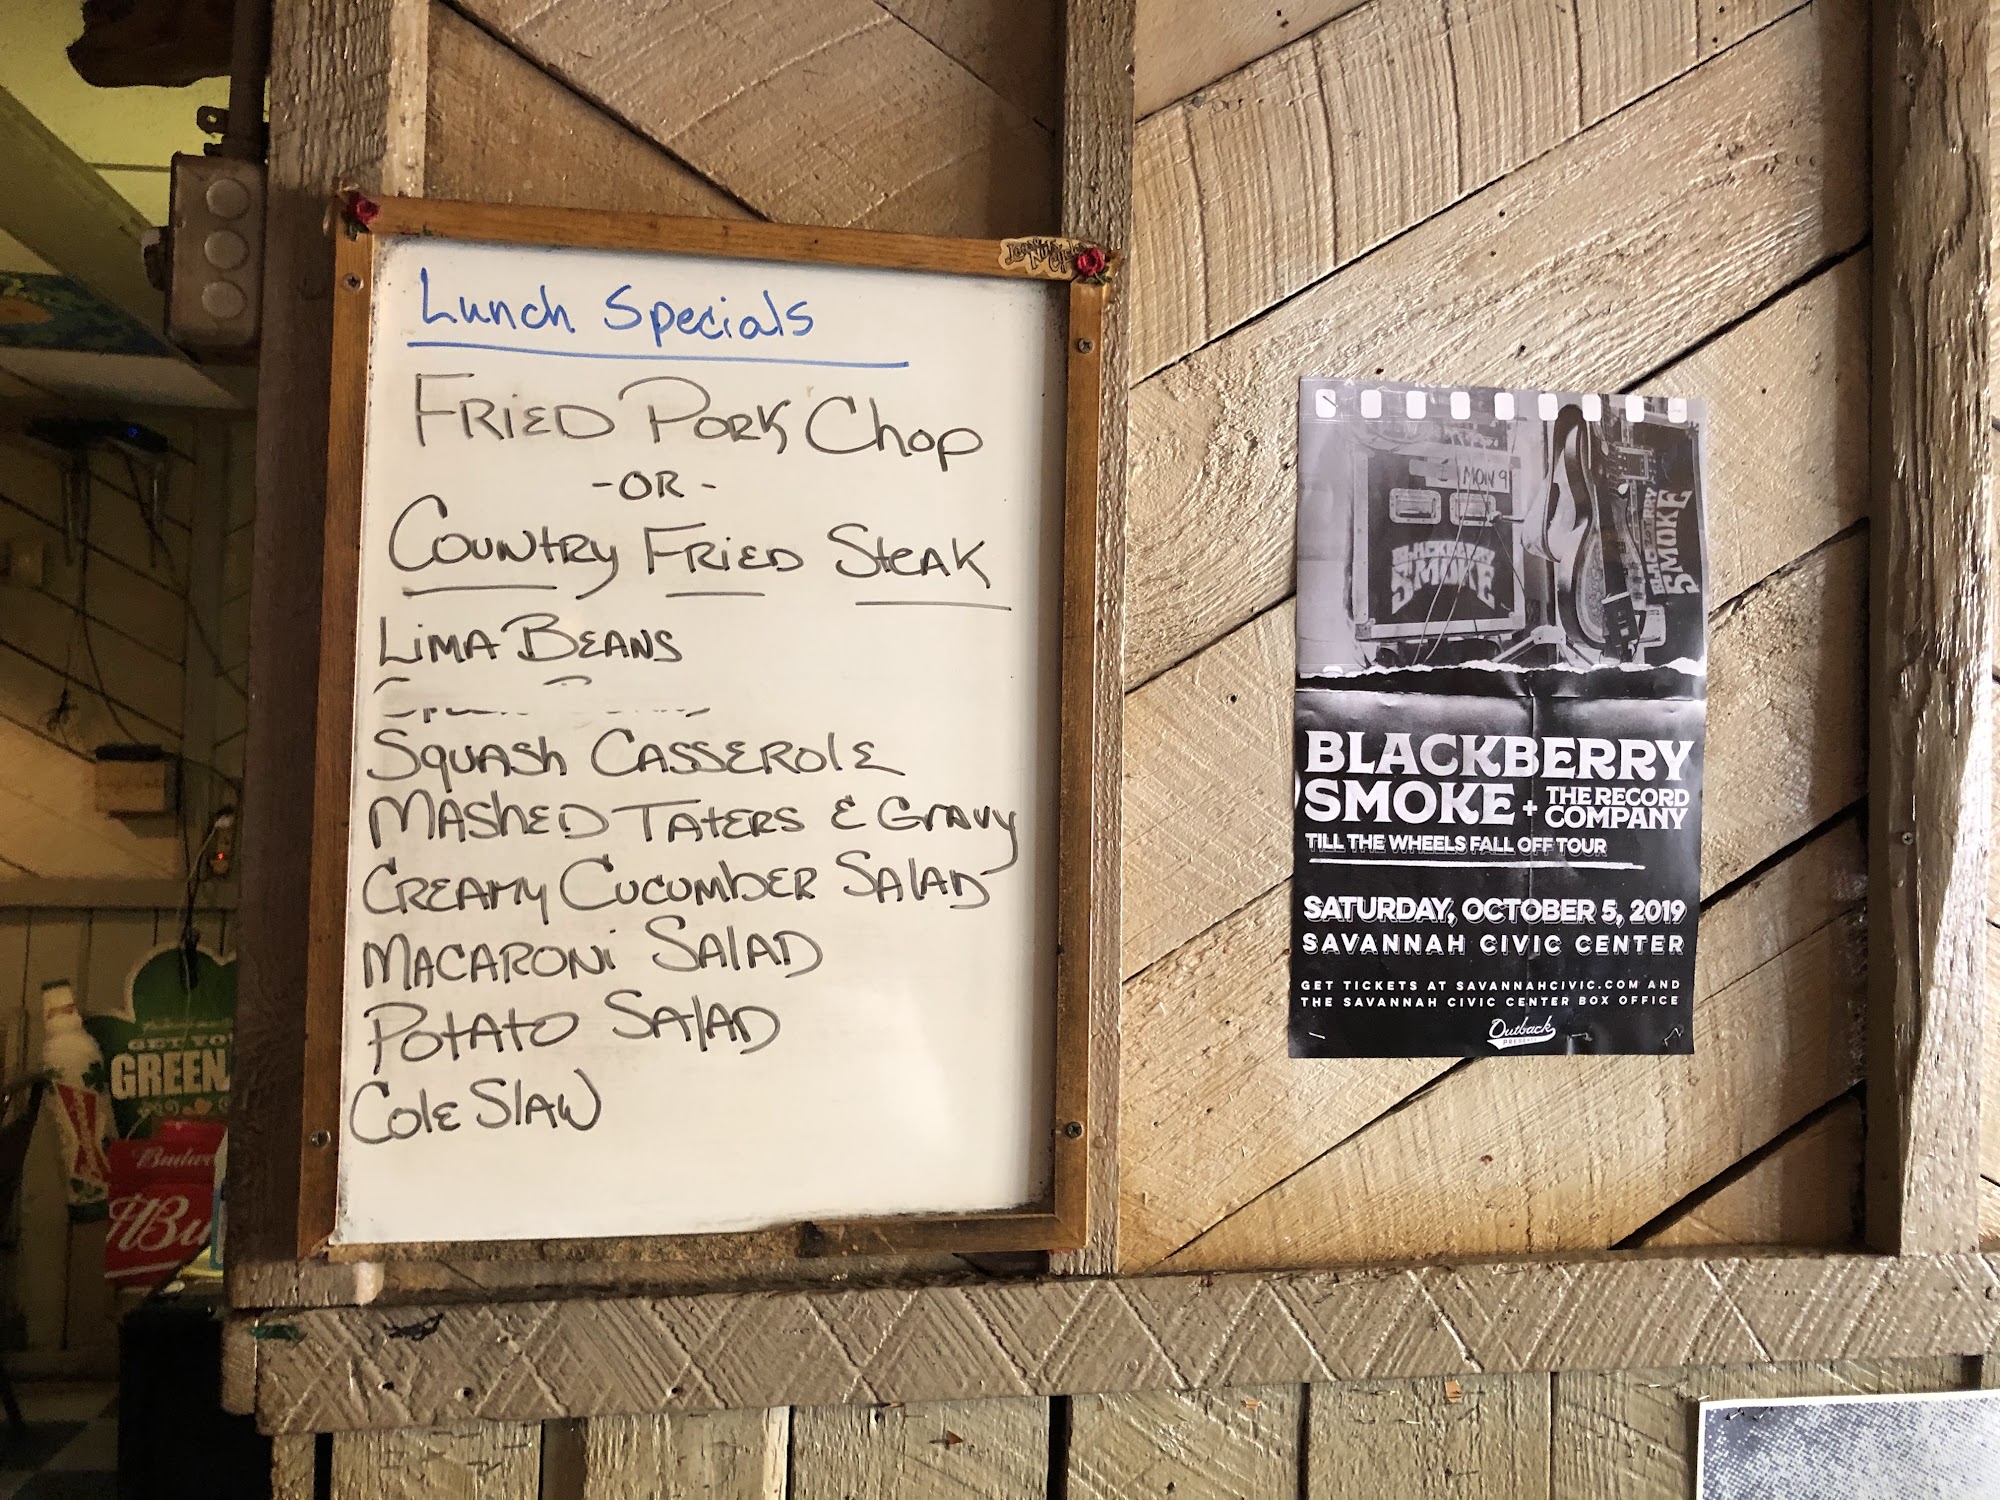 Lunch Specials
FRIED PORK Chop
-OR-
COUNTRY FRIED STEAK
LIMA BEANS
SQUASH CASSEROLE
MASHED TATERS & GRAVY
CREAMY CUCUMBER SALAD
MACARONI SALAD
POTATO SALAD
COLE SLAW
MON 9
BLACKBERRY
SMOKE
BLACKBERRY
SMOKE
BLACKBERRY
SMOKE + THE RECORD
COMPANY
TILL THE WHEELS FALL OFF TOUR
SATURDAY, OCTOBER 5, 2019
SAVANNAH CIVIC CENTER
GET TICKETS AT SAVANNAHCIVIC.COM AND
THE SAVANNAH CIVIC CENTER BOX OFFICE
Outback
PRESENTS
GET YO
GREEN
Budwe
Bu